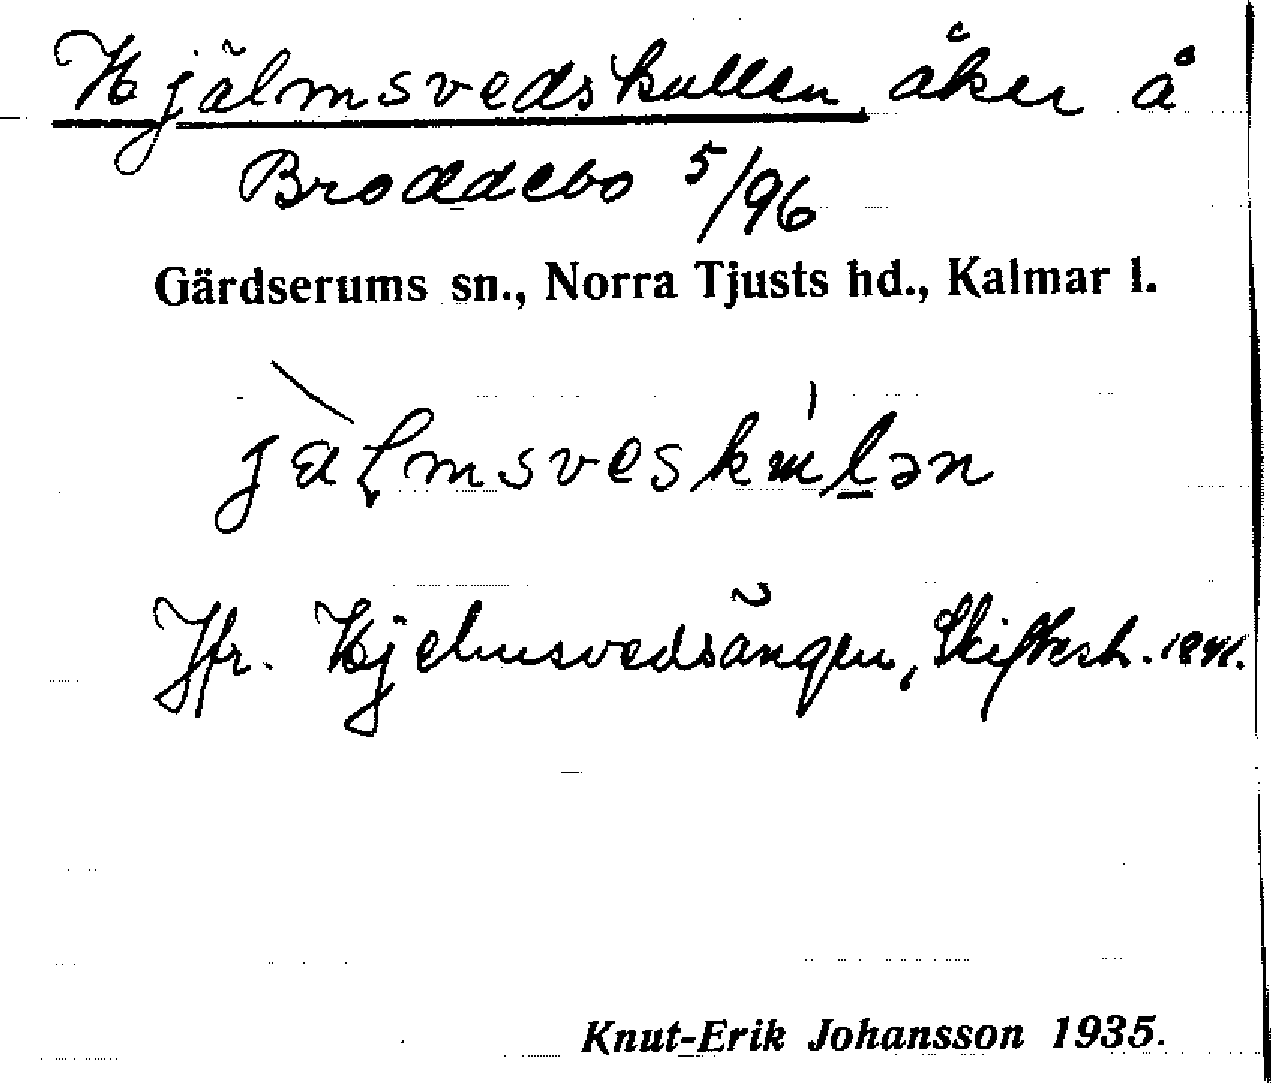 Hjälmsvedskullen åker å
Broddebo 5/96
Gärdserums sn., Norra Tjusts hd., Kalmar l.
jàlmsveskulən
Jfr. Hjelmsvedsängen, Skiftesh. 1841.
Knut-Erik Johansson 1935.